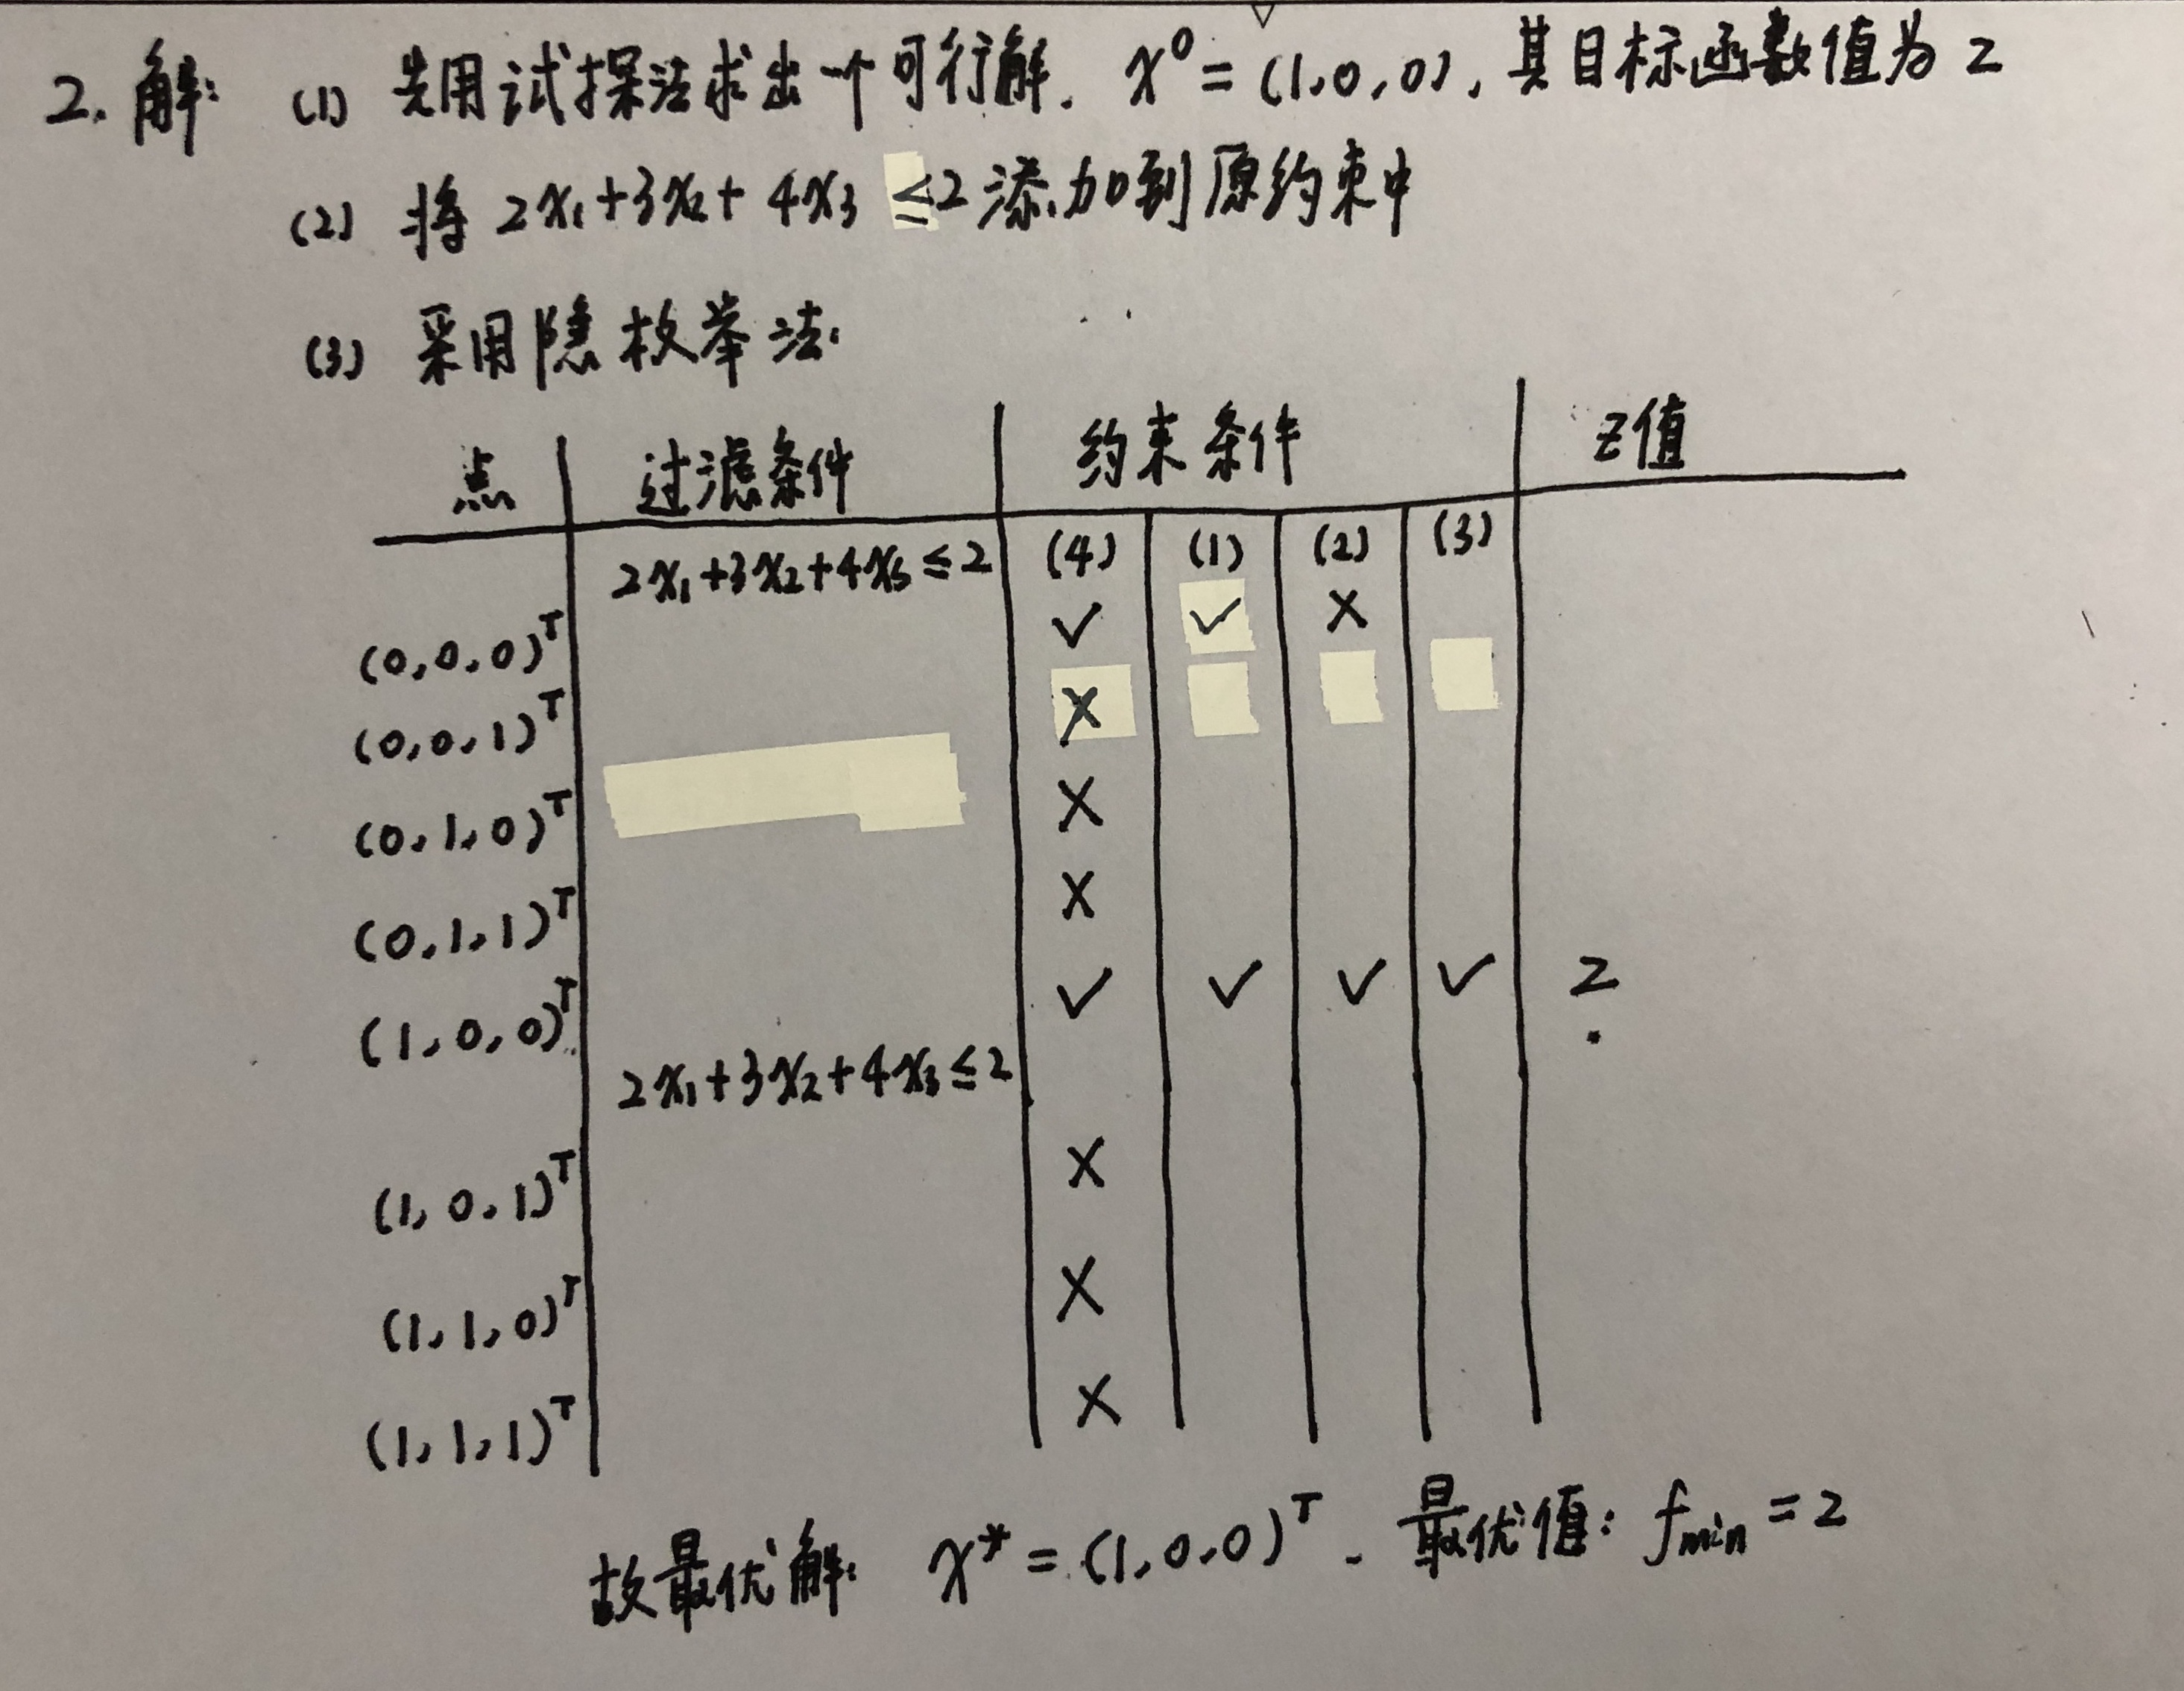 2. 解: (1) 先用试探法求出一个可行解. x⁰ = (1,0,0), 其目标函数值为 2
(2) 将 2x₁+3x₂+4x₃ ≤2 添加到原约束中
(3) 采用隐枚举法.
点 过滤条件 约束条件 z值
2x₁+3x₂+4x₃ ≤ 2 (4) (1) (2) (3)
(0,0,0)ᵀ ✓ ✓ ×
(0,0,1)ᵀ ×
(0,1,0)ᵀ ×
(0,1,1)ᵀ ×
(1,0,0)ᵀ ✓ ✓ ✓ ✓ 2
2x₁+3x₂+4x₃ ≤ 2
(1,0,1)ᵀ ×
(1,1,0)ᵀ ×
(1,1,1)ᵀ ×
故最优解: x* = (1,0,0)ᵀ. 最优值: fmin = 2